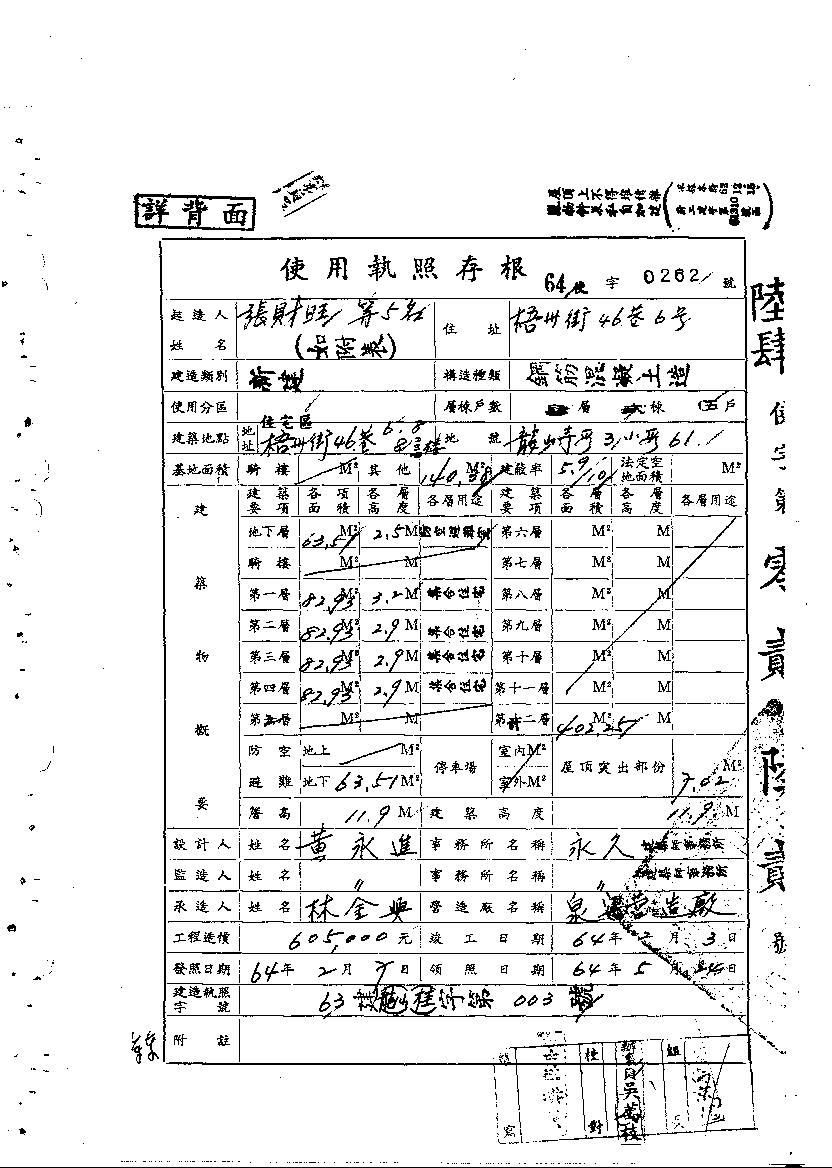 詳背面
使用執照存根 64使字 0262 號
起造人姓名 張財旺 等5名 (如附表) 住址 梧州街46巷6号
建造類別 新建 構造種類 鋼筋混凝土造
使用分區 住宅區 層棟戶數 層 棟 伍戶
建築地點 地址 梧州街46巷6.8 地號 龍山寺段3小段61.1
基地面積 騎樓 M² 其他 140.38 M² 建蔽率 5.9/10 法定空地面積 M²
建築物概要
建築要項 各項面積 各層高度 各層用途 建築要項 各層面積 各層高度 各層用途
地下層 63.51 M² 2.5 M 第六層 M² M
騎樓 M² M 第七層 M² M
第一層 82.93 M² 3.2 M 集合住宅 第八層 M² M
第二層 82.93 M² 2.9 M 集合住宅 第九層 M² M
第三層 82.93 M² 2.9 M 集合住宅 第十層 M² M
第四層 82.93 M² 2.9 M 集合住宅 第十一層 M² M
第五層 M² M 第十二層 402.25 M² M
防空避難 地上 M² 停車場 室內 M² 屋頂突出部份 7.02 M²
地下 63.51 M² 室外 M²
簷高 11.9 M 建築高度 11.9 M
設計人 姓名 黃永進 事務所名稱 永久建築師事務所
監造人 姓名 〃 事務所名稱 〃 建築師事務所
承造人 姓名 林金興 營造廠名稱 泉 營造廠
工程造價 605,000 元 竣工日期 64年2月3日
發照日期 64年2月7日 領照日期 64年5月 日
建造執照字號 63 003
附註
陸肆使字第零貳陸貳號
校對
吳萬枝
組